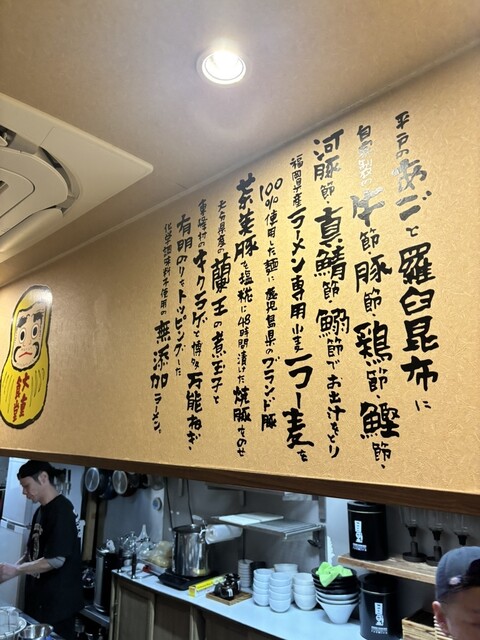 平戸のあごと羅臼昆布に
自家製の牛節・豚節・鶏節・鰹節・
河豚節・真鯖節・鰯節でお出汁をとり
福岡県産ラーメン専用小麦ラー麦を
100%使用した麺に鹿児島県のブランド豚
茶美豚を塩糀に48時間漬けた焼豚をのせ
大分県産の蘭王の煮玉子と
東峰村のキクラゲと博多万能ねぎ・
有明のりをトッピングした
化学調味料不使用の無添加ラーメン。
大重食堂